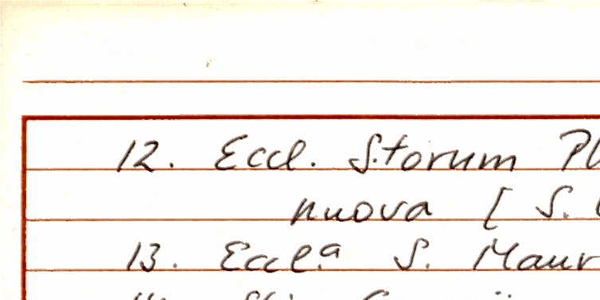 12. Eccl. S.torum Pl
nuova [ S.
13. Eccl.a S. Maur